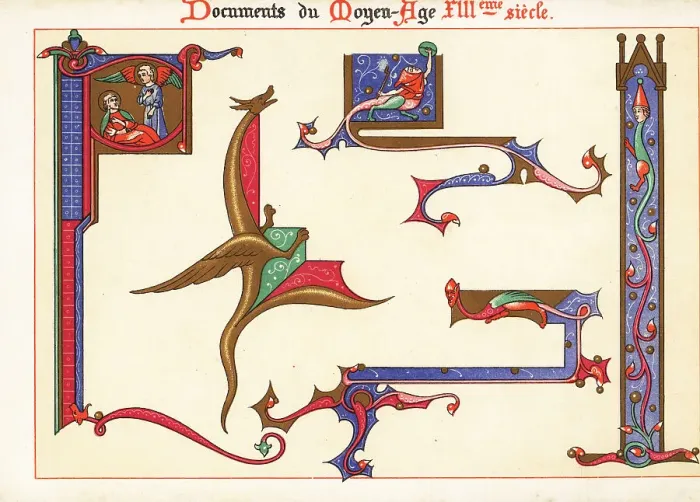 Documents du Moyen-Age XIII ème siècle.